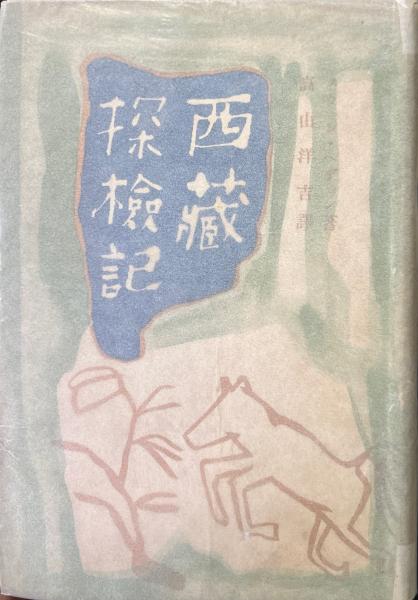 西藏
探檢記
著
高山洋吉譯